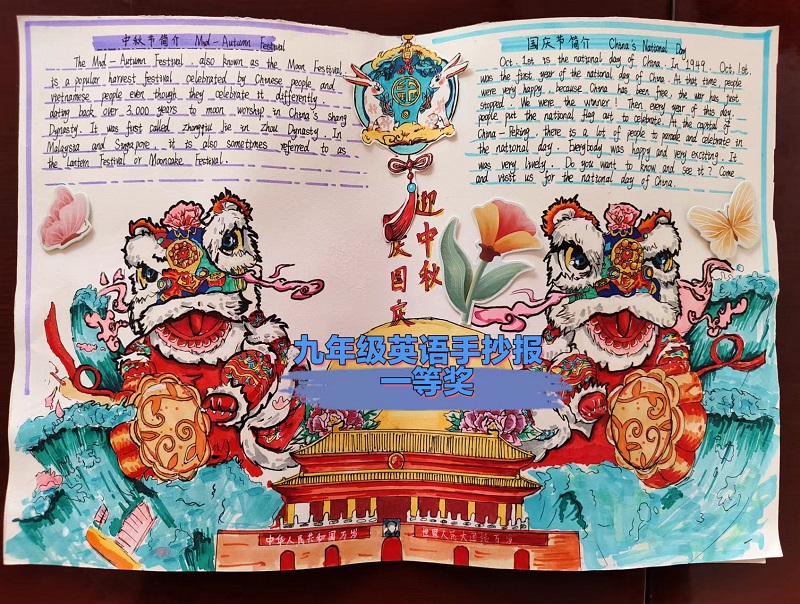 中秋节简介 Mid-Autumn Festival
The Mid-Autumn Festival, also known as the Moon Festival,
is a popular harvest festival celebrated by Chinese people and
vietnamese people even though they celebrate it differently
dating back over 3,000 years to moon worship in China's shang
Dynasty. It was first called zhongqiu Jie in Zhou Dynasty. In
Malaysia and Singapore, it is also sometimes referred to as
the Lantern Festival or Mooncake Festival.
国庆节简介 China's National Day
Oct. 1st is the national day of China. In 1949, Oct. 1st.
was the first year of the national day of China. At that time, people
were very happy, because China has been free, the war has just
stopped. We were the winner! Then every year of this day,
people put the national flag out to celebrate. At the capital of
China-Peking, there is a lot of people to parade and celebrate in
the national day. Everybody was happy and very exciting. It
was very lively. Do you want to know and see it? Come
and visit us for the national day of China.
迎中秋
庆国庆
九年级英语手抄报
一等奖
中华人民共和国万岁
世界人民大团结万岁